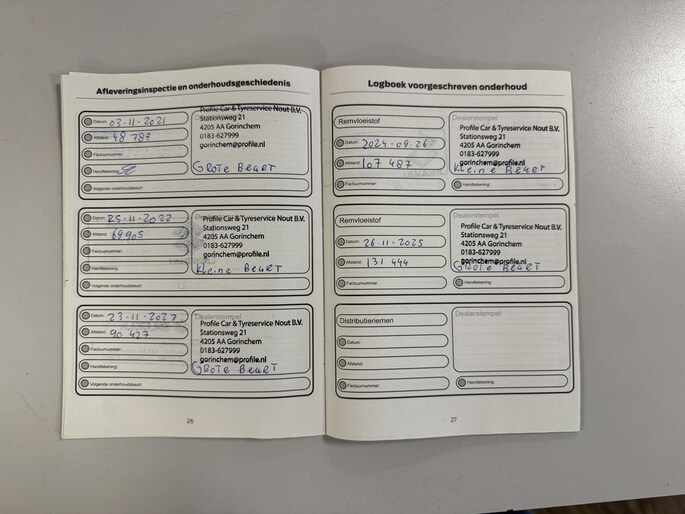 Afleveringsinspectie en onderhoudsgeschiedenis
Datum: 03-11-2021
Afstand: 48 787
Factuurnummer:
Handtekening:
Volgende onderhoudsbeurt:
Profile Car & Tyreservice Nout B.V.
Stationsweg 21
4205 AA Gorinchem
0183-627999
gorinchem@profile.nl
Grote Beurt
Datum: 25-11-2022
Afstand: 69905
Factuurnummer:
Handtekening:
Volgende onderhoudsbeurt:
Dealerstempel
Profile Car & Tyreservice Nout B.V.
Stationsweg 21
4205 AA Gorinchem
0183-627999
gorinchem@profile.nl
Kleine Beurt
Datum: 23-11-2023
Afstand: 90 427
Factuurnummer:
Handtekening:
Volgende onderhoudsbeurt:
Dealerstempel
Profile Car & Tyreservice Nout B.V.
Stationsweg 21
4205 AA Gorinchem
0183-627999
gorinchem@profile.nl
Grote Beurt
26
Logboek voorgeschreven onderhoud
Remvloeistof
Datum: 2024-09-26
Afstand: 107 487
Factuurnummer:
Dealerstempel
Profile Car & Tyreservice Nout B.V.
Stationsweg 21
4205 AA Gorinchem
0183-627999
gorinchem@profile.nl
Kleine Beurt
Handtekening:
Remvloeistof
Datum: 26-11-2025
Afstand: 131 444
Factuurnummer:
Dealerstempel
Profile Car & Tyreservice Nout B.V.
Stationsweg 21
4205 AA Gorinchem
0183-627999
gorinchem@profile.nl
Grote Beurt
Handtekening:
Distributieriemen
Datum:
Afstand:
Factuurnummer:
Dealerstempel
Handtekening:
27